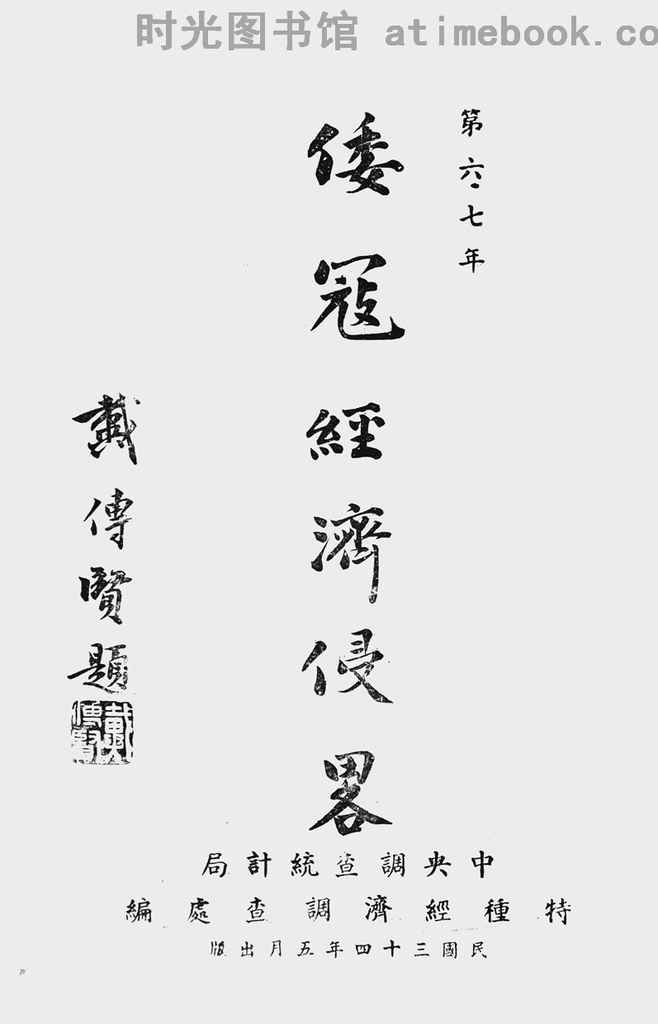 时光图书馆 atimebook.co
第六·七年
倭寇經濟侵畧
戴傳賢題
戴傳賢
中央調查統計局
特種經濟調查處編
民國三十四年五月出版